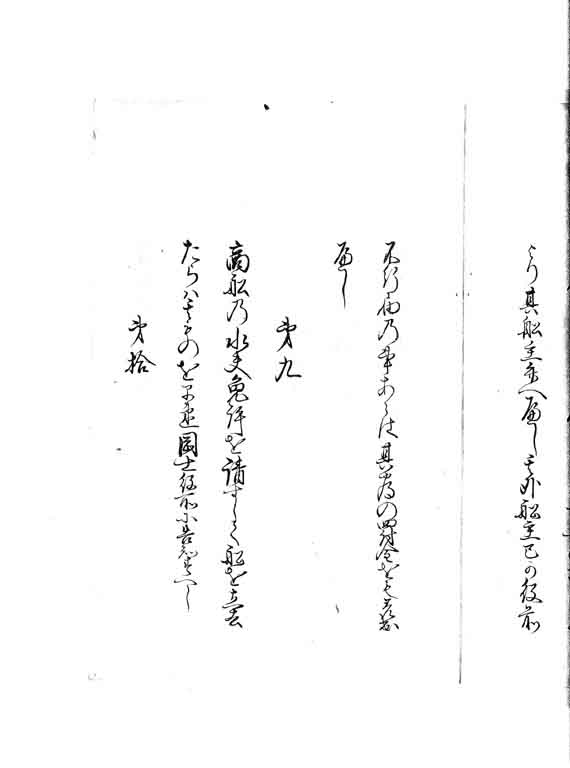 より其船主亦へ為へし其外船主己の役前
不行届の事あらは其当の罰金をも差出
へし
第九
商船乃水夫免許を請すして船を立去
たらハ其ものを早速岡士役所に告知すへし
第拾